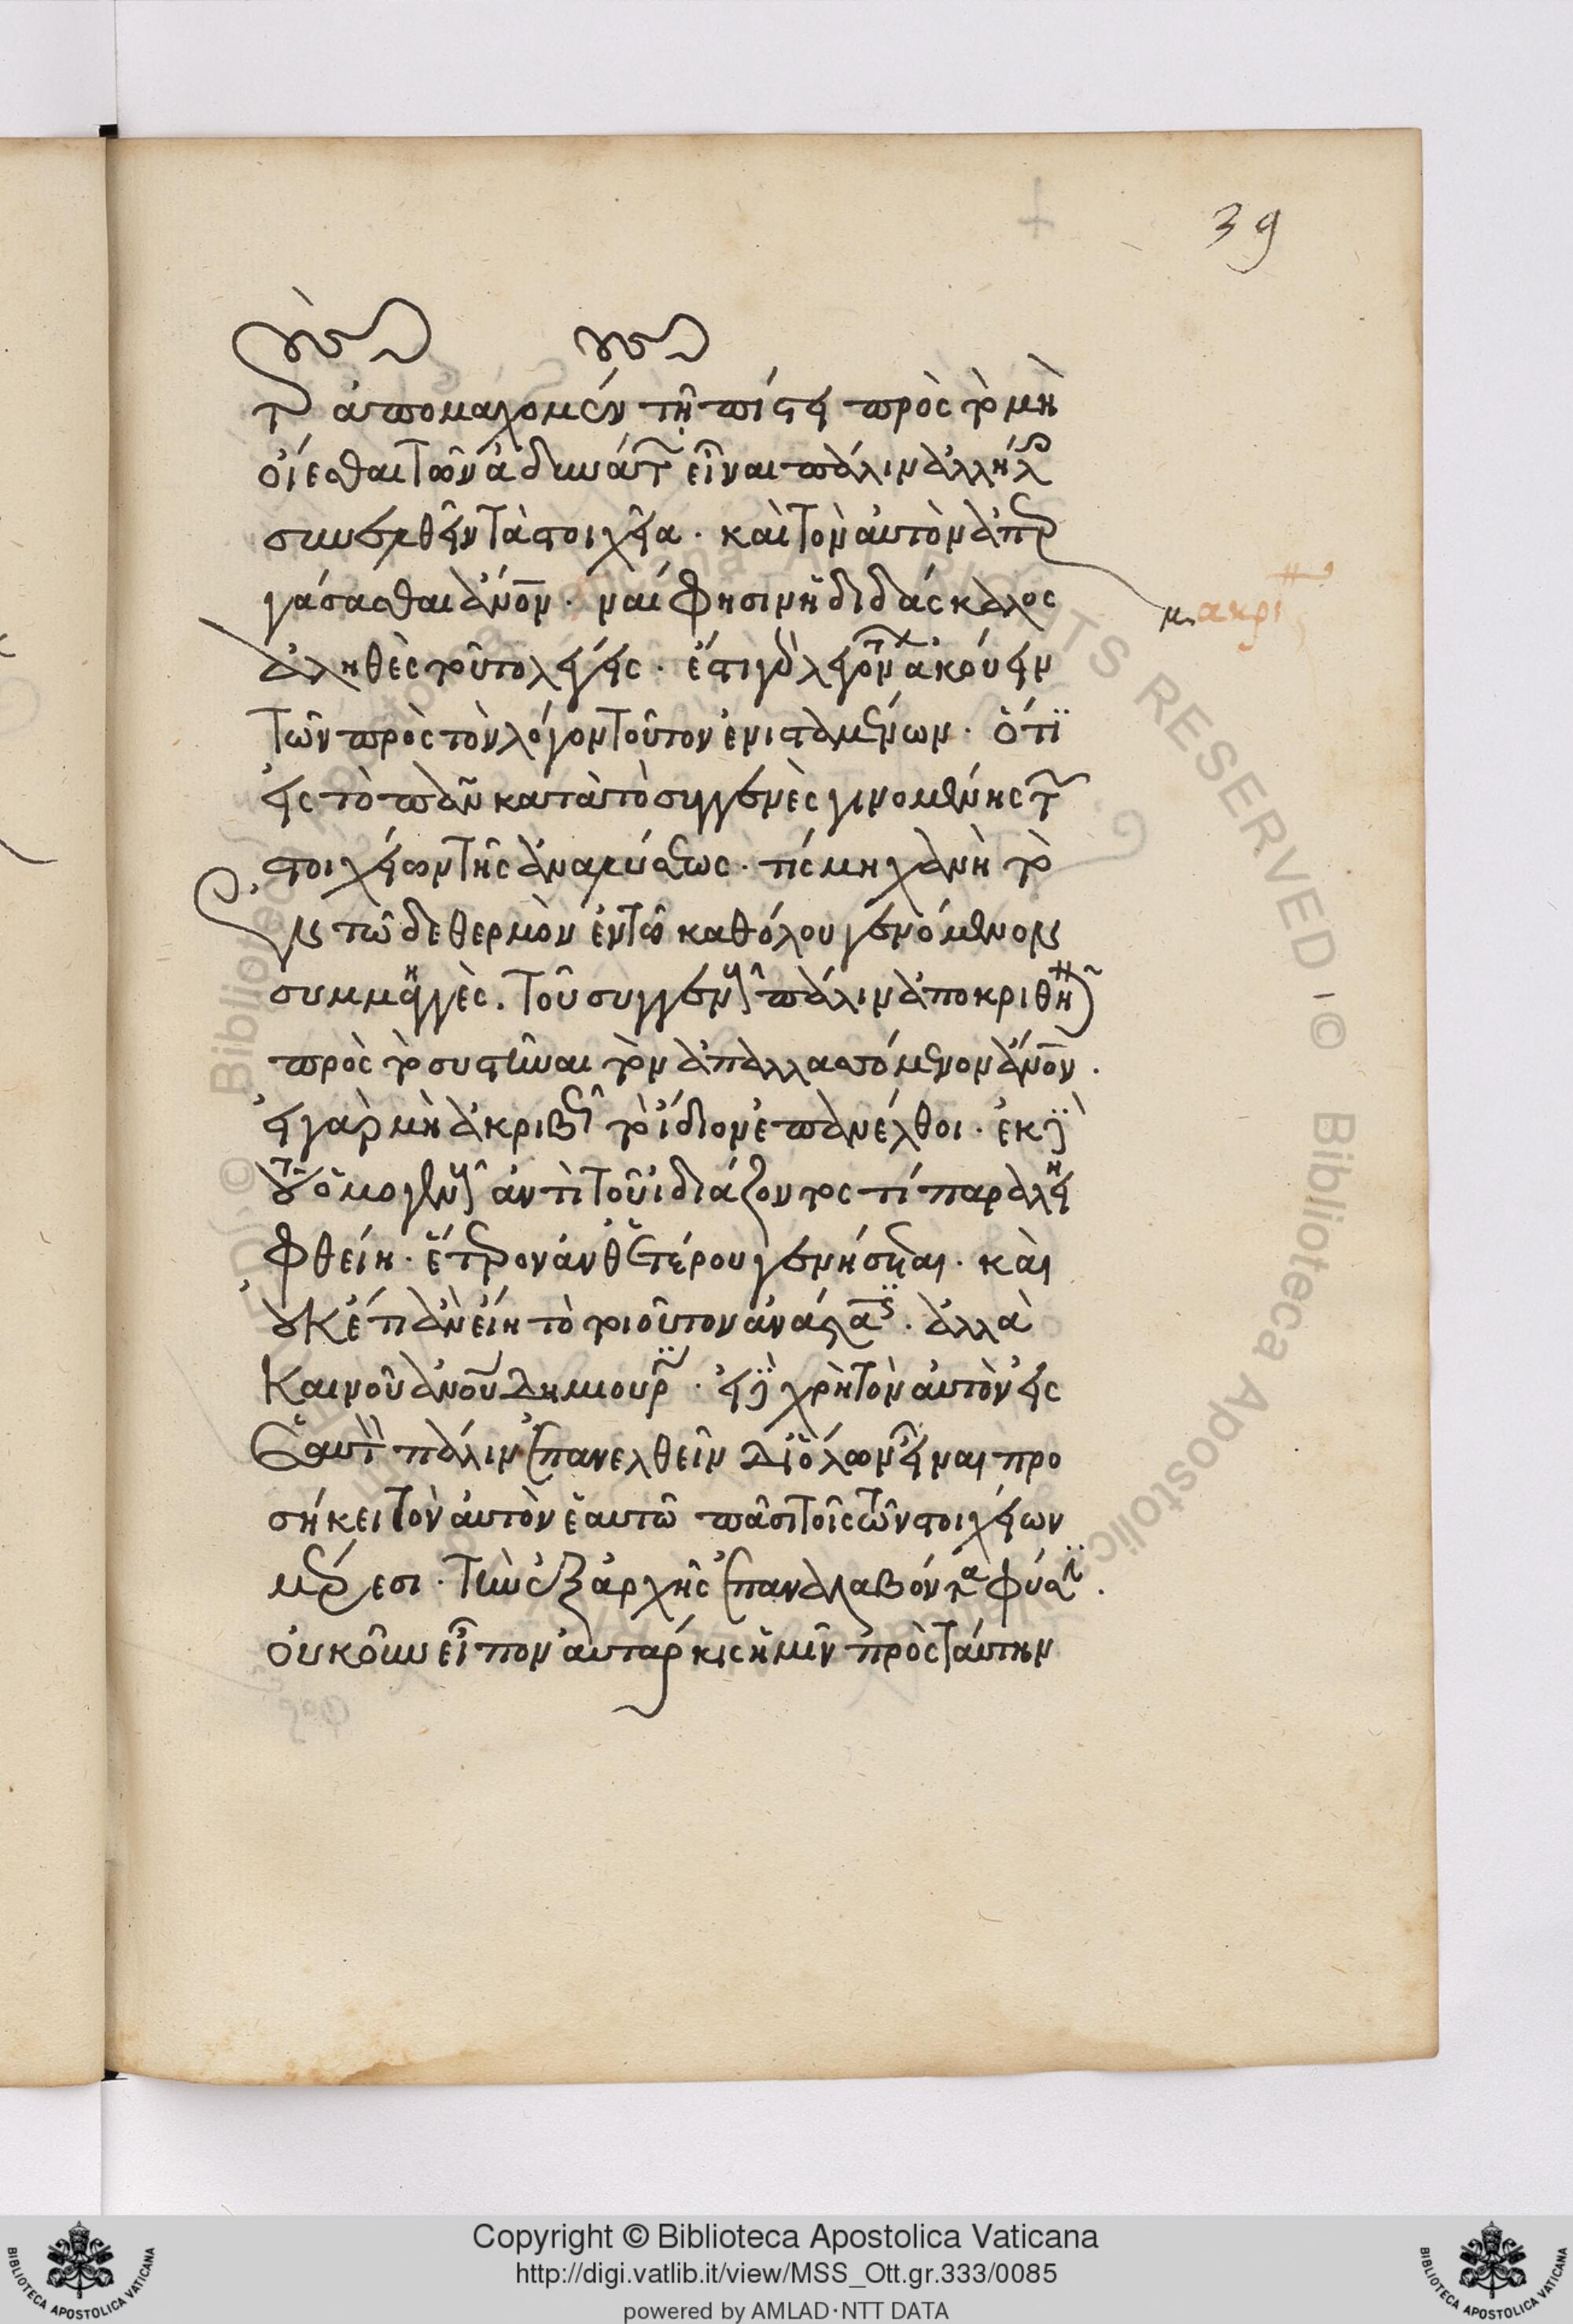 39
τ ἀπομαχομέν τῆ πίστει πρὸς τὸ μὴ
οἴεσθαι τῶν ἀδυνάτ εἶναι πάλιν ἀλλήλ
συνενεχθῆν τὰ στοιχεῖα · καὶ τὸν αὐτὸν ἀπερ
γάσασθαι ἄνον · ναί φησιν ἡ διδάσκαλος
ἀληθὲς τοῦτο λέγεις · ἔστι γὰρ λεγόντ ἀκούειν
τῶν πρὸς τὸν λόγον τοῦτον ἐνισταμένων · ὅτι
εἰς τὸ πᾶν κατὰ τὸ συγγενὲς γινομένης τ
στοιχείων τῆς ἀναχύσεως · τίς μηχανὴ τὸ
ἐν τῶδε θερμὸν ἐν τῶ καθόλου γενόμενον
συμμιγὲς . τοῦ συγγενοῦς πάλιν ἀποκριθῆναι
πρὸς τὸ συστῆναι τὸν ἀναπλασσόμενον ἄνον .
εἰ γὰρ μὴ ἀκριβῶς τὸ ἴδιον ἐπανέλθοι · ἐκ δὲ
τοῦ ὁμογενοῦς ἀντὶ τοῦ ἰδιάζοντός τι παραλη
φθείη · ἕτερον ἀνθ' ἑτέρου γενήσεται · καὶ
οὐκ ἔτι ἂν εἴη τὸ τοιοῦτον ἀνάστασις . ἀλλὰ
καινοῦ ἀνου δημιουρ · εἰ δὲ χρὴ τὸν αὐτὸν εἰς
ἑαυτὸν πάλιν ἐπανελθεῖν δι' ὅλων εἶναι προ
σήκει τὸν αὐτὸν ἑαυτῶ πᾶσι τοῖς τῶν στοιχείων
μέρεσι · τὴν ἐξ ἀρχῆς ἐπαναλαβόντα φύσιν .
οὐκοῦν εἶπον αὐταρκὶς ἡμῖν πρὸς ταύτην
Copyright © Biblioteca Apostolica Vaticana
http://digi.vatlib.it/view/MSS_Ott.gr.333/0085
powered by AMLAD·NTT DATA